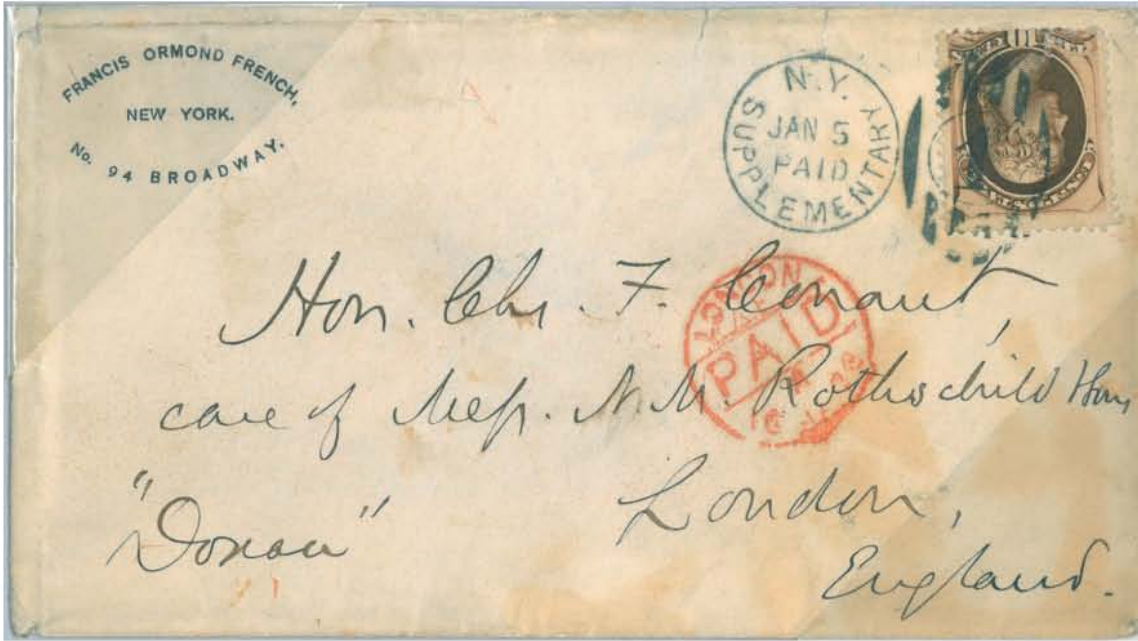 FRANCIS ORMOND FRENCH,
NEW YORK.
No. 94 BROADWAY.
N.Y.
JAN 5
PAID
SUPPLEMENTARY
LONDON
PAID
Hon. Chs. F. Conant,
care of Mess. N. M. Rothschild
"Donau"
London,
England.